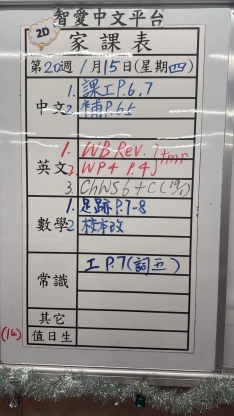 智愛中文平台
2D
家課表
第20週 1月15日(星期四)
中文
1. 課工P.6,7
2. 補P.65
英文
1. WB Rev.
2. WP4 P.4
tmr
3. ChWS6+C(19/1)
數學
1. 足跡P.7-8
2. 校本改
常識
工P.7(詞五)
其它
(14)
值日生